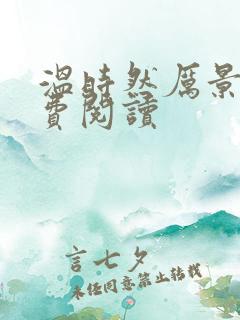 溫時然厲景
費閱讀
言七夕
未经同意禁止转载